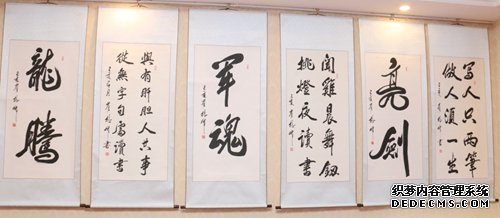 龍騰
與有肝胆人共事
從無字句處讀書
軍魂
聞雞晨舞劍
挑燈夜讀書
亮劍
寫人只兩筆
做人須一生
织梦内容管理系统
DEDECMS.COM